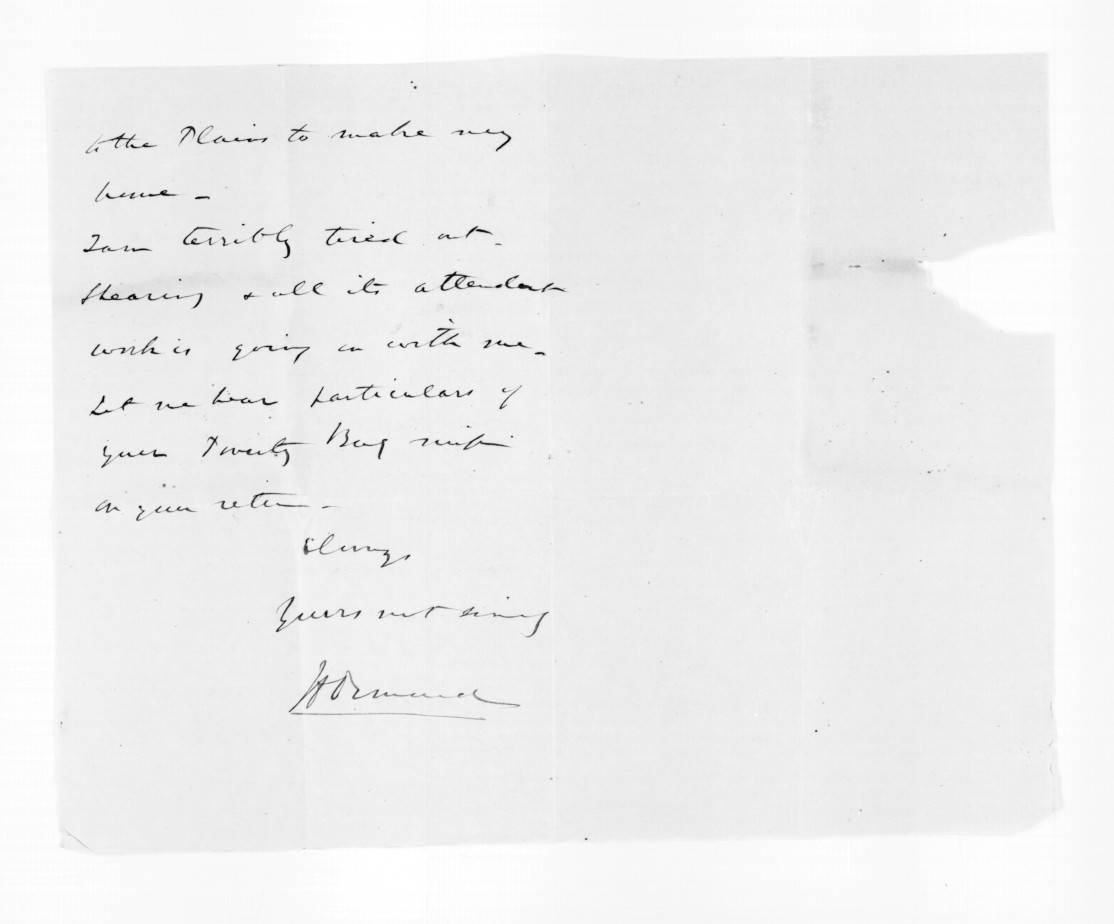 to the Plains to make my
home -
I am terribly tired out.
Shearing & all its attendant
work is going on with me -
Let me hear particulars of
your Poverty Bay
on your return -
Always
Yours most sincely
Ormond